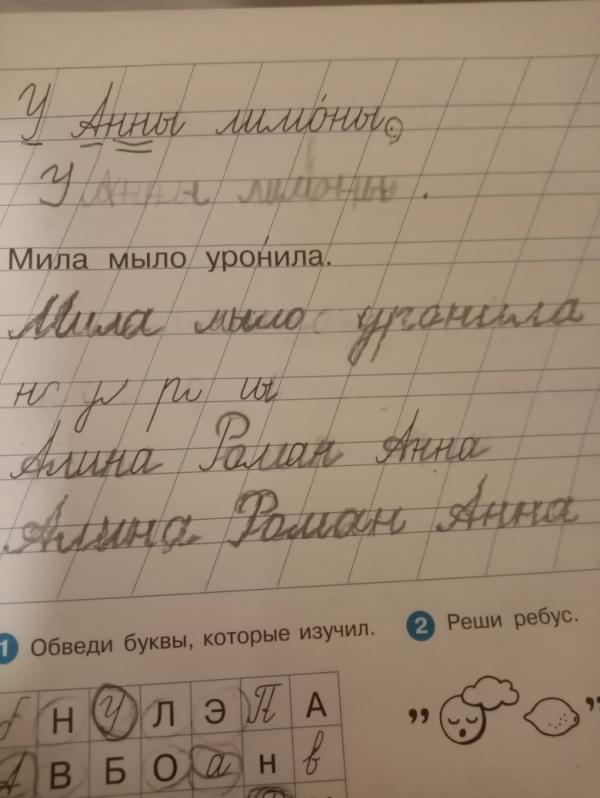 У Анны лимо́ны.
У Анны лимоны.
Мила мыло уро́нила.
Мила мыло уронила
н у р ы
Алина Роман Анна
Алина Роман Анна
1 Обведи буквы, которые изучил.
2 Реши ребус.
Н У Л Э П А
А В Б О а н в
„ "